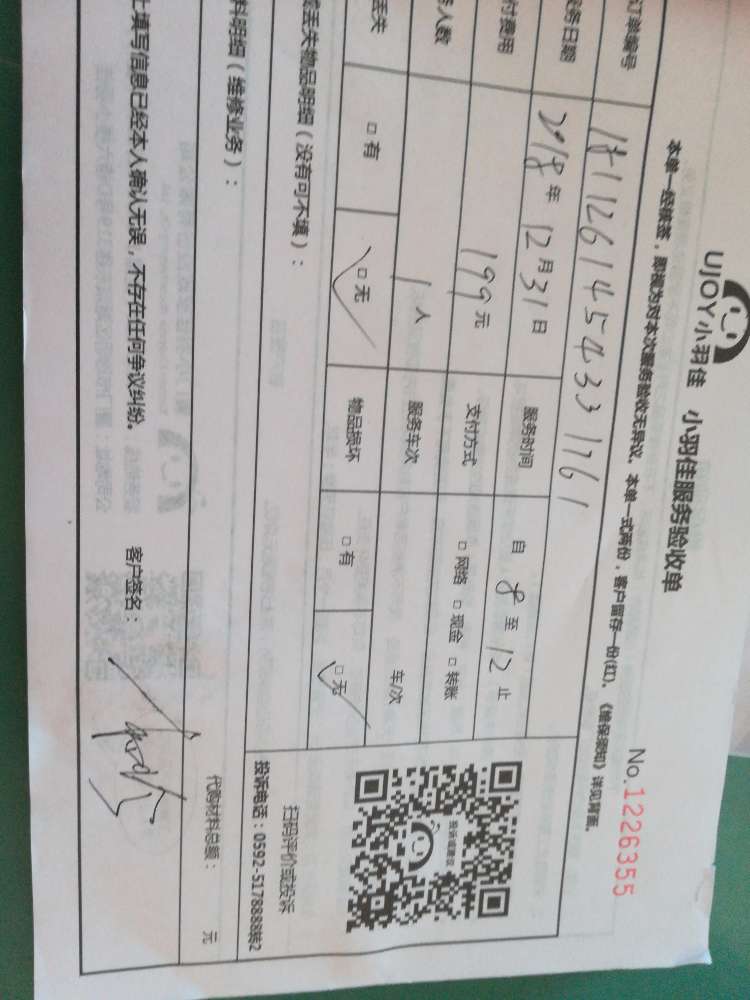 UJOY小羽佳 小羽佳服务验收单
No.1226355
本单一经核签，即视为对本次服务验收无异议。本单一式两份，客户留存一份(红)。《维保须知》详见背面。
订单编号 1811261454331761
务日期 2018年12月31日 服务时间 自8至12止
付费用 199元 支付方式 □网络 □现金 □转账
人数 1人 服务车次 车/次
丢失 □有 □无 物品损坏 □有 □无
丢失物品明细（没有可不填）：
投诉或建议
扫码评价或投诉
投诉电话：0592-5178888转2
料明细（维修业务）：
代购材料总额： 元
上填写信息已经本人确认无误，不存在任何争议纠纷。 客户签名：